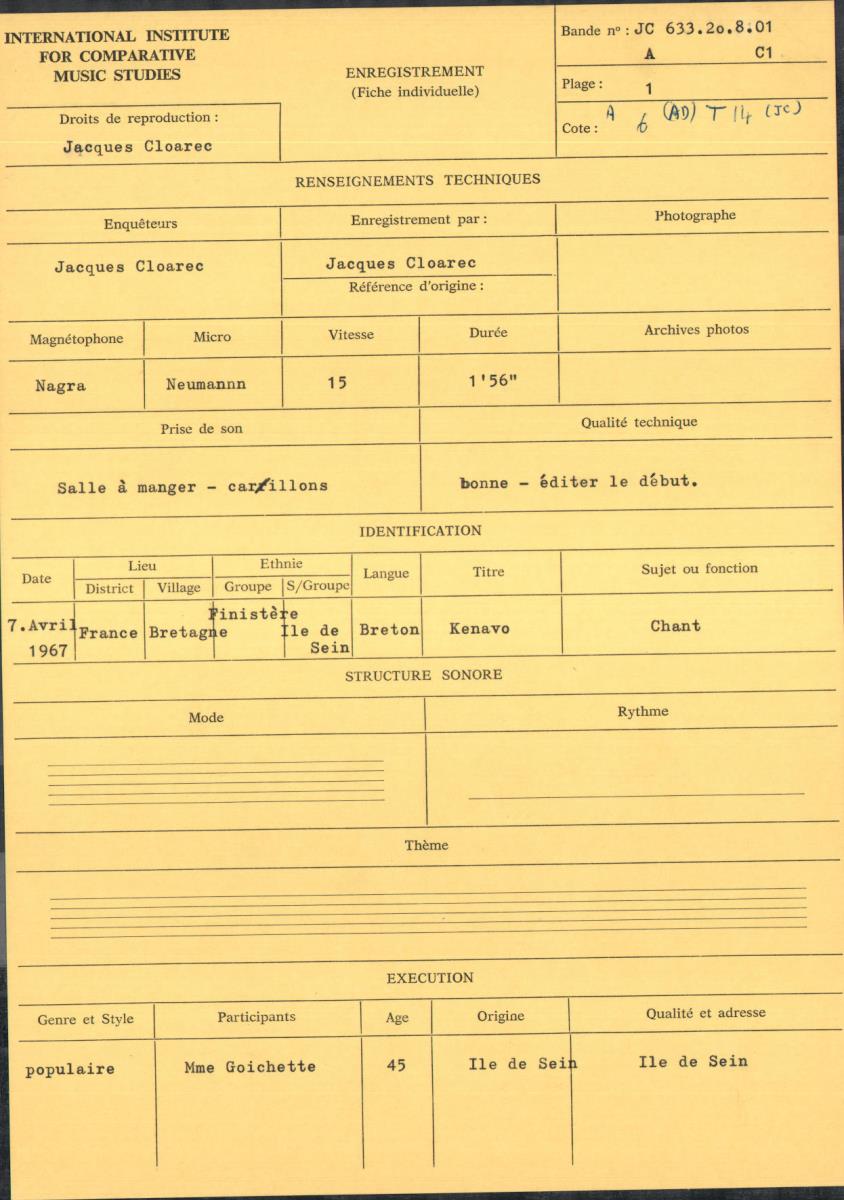 INTERNATIONAL INSTITUTE
FOR COMPARATIVE
MUSIC STUDIES
Droits de reproduction :
Jacques Cloarec
ENREGISTREMENT
(Fiche individuelle)
Bande nº : JC 633.2o.8.01
A C1
Plage : 1
Cote : A 6 (AD) T 14 (JC)
RENSEIGNEMENTS TECHNIQUES
Enquêteurs Enregistrement par : Photographe
Jacques Cloarec Jacques Cloarec
Référence d'origine :
Magnétophone Micro Vitesse Durée Archives photos
Nagra Neumannn 15 1'56"
Prise de son Qualité technique
Salle à manger - carillons bonne - éditer le début.
IDENTIFICATION
Date Lieu Ethnie Langue Titre Sujet ou fonction
District Village Groupe S/Groupe
7.Avril 1967 France Bretagne Finistère Ile de Sein Breton Kenavo Chant
STRUCTURE SONORE
Mode Rythme
Thème
EXECUTION
Genre et Style Participants Age Origine Qualité et adresse
populaire Mme Goichette 45 Ile de Sein Ile de Sein